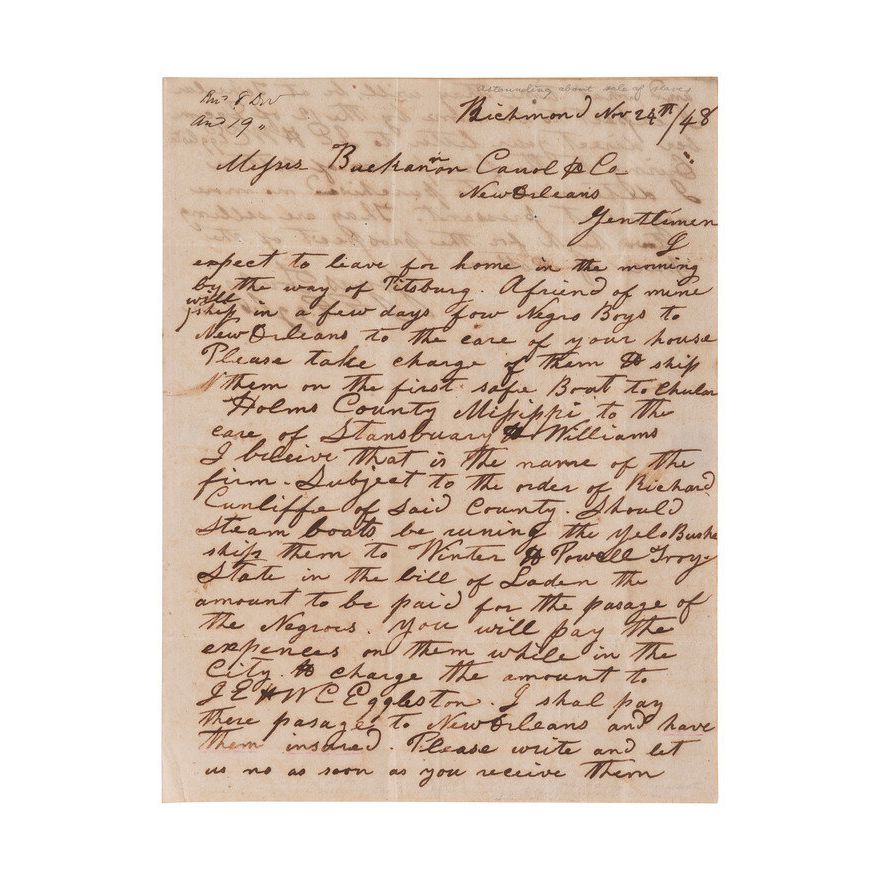 astounding about sale of slaves
Recd 8 Dec
Ansd 19 "
Richmond Nov 24th /48
Messrs Buckannon Carrol & Co
New Orleans
Gentlimen
I
expect to leave for home in the morning
by the way of Pitsburg. A friend of mine
will
ship in a few days fow Negro Boys to
New Orleans to the care of your house
Please take charge of them & ship
them on the first safe Boat to Chular
Holms County Misippi to the
care of Stansbuary & Williams
I beleive that is the name of the
firm. Subject to the order of Richard
Cunliffe of Said County. Should
Steam boats be runing the Yelo Bushe
ship them to Winter & Powell Troy
State in the bill of Laden the
amount to be paid for the pasage of
the Negroes. You will pay the
expences on them while in the
City & charge the amount to
J E & W C Eggleston. I shal pay
there pasage to New Orleans and have
them insured. Please write and let
us no as soon as you receive them